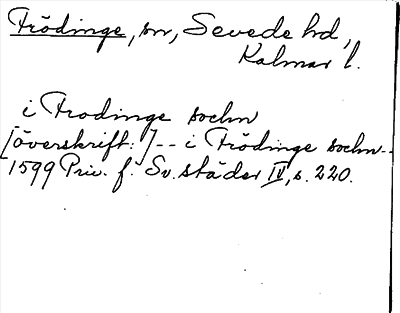 Frödinge, sn, Sevede hd,
Kalmar l.
i Frodinge sochn
[överskrift:] -- i Frödinge sochn --
1599 Priv. f. Sv. städer IV, s. 220.